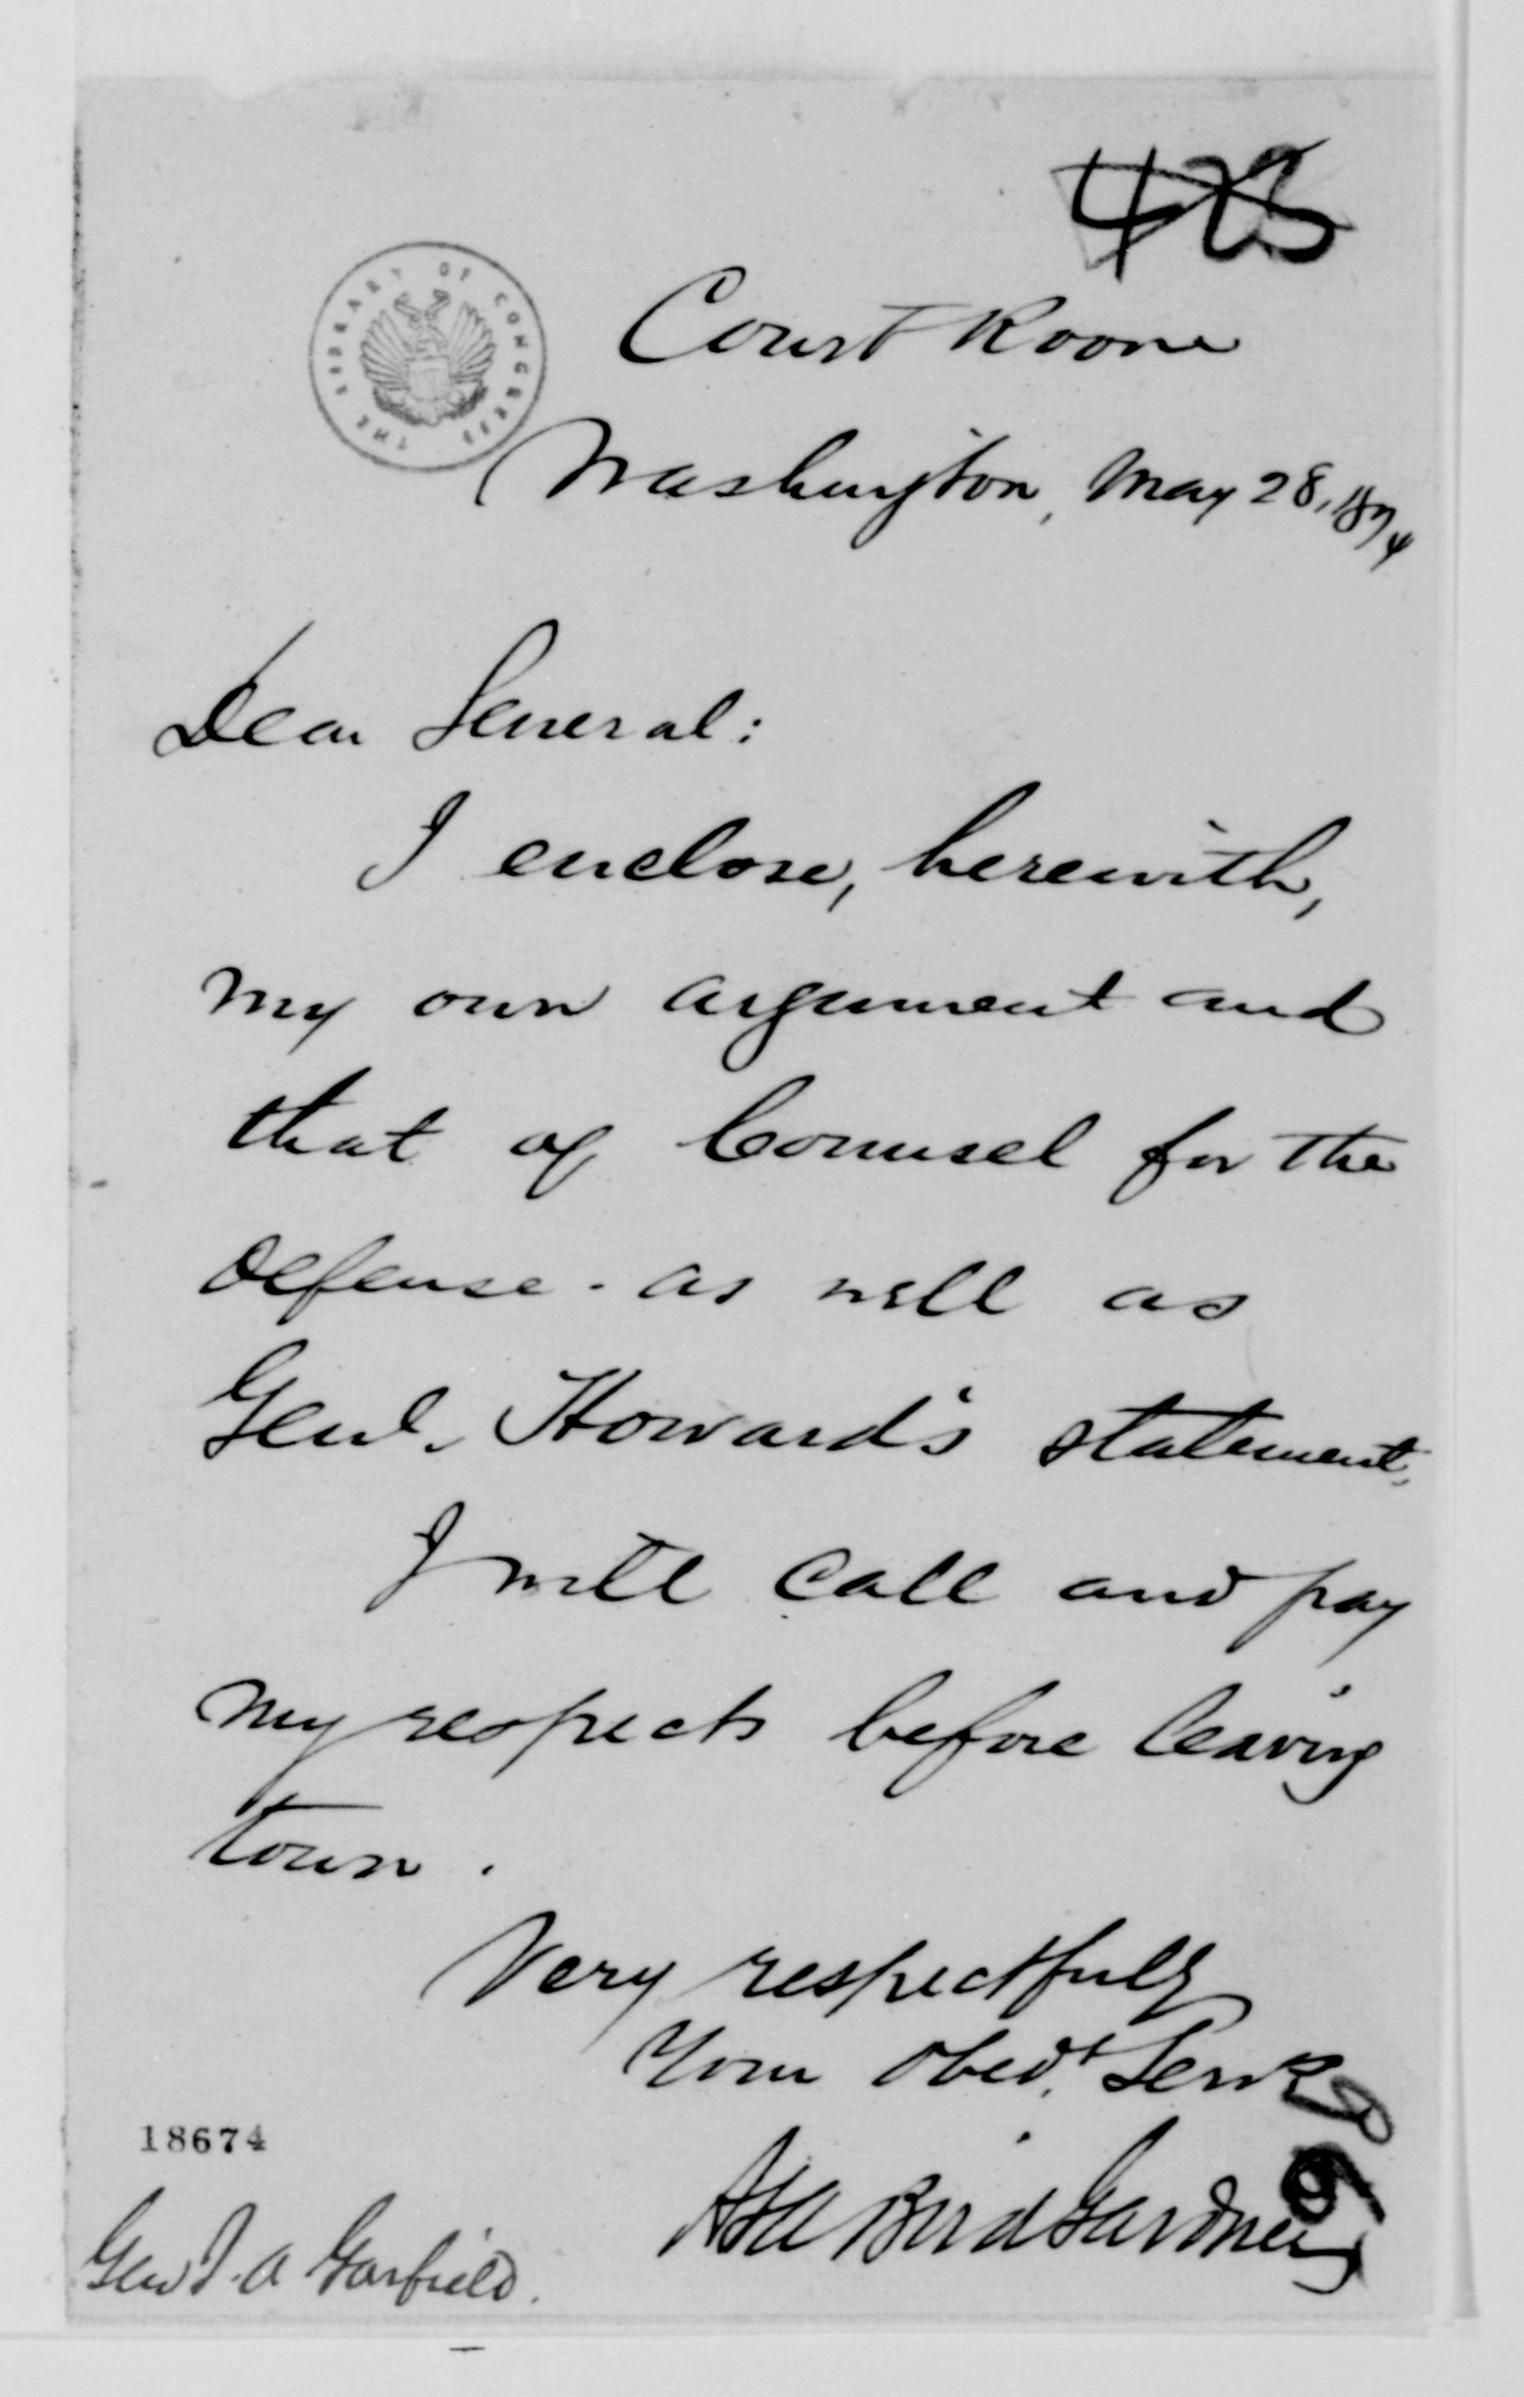 423
Court Room
THE LIBRARY OF CONGRESS
Washington, May 28, 1874
Dear General:
I enclose, herewith,
my own argument and
that of Counsel for the
defense - as well as
Genl. Howard's statement.
I will call and pay
my respects before leaving
town.
Very respectfully
Your Obedt. Servt
18674
Asa Bird Gardner
Gen J. A Garfield.